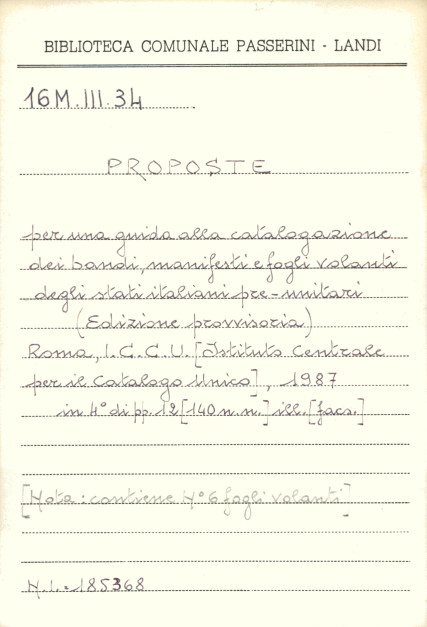 BIBLIOTECA COMUNALE PASSERINI - LANDI
16M.III.34
PROPOSTE
per una guida alla catalogazione
dei bandi, manifesti e fogli volanti
degli stati italiani pre-unitari
(Edizione provvisoria)
Roma, I.C.C.U. [Istituto Centrale
per il Catalogo Unico], 1987
in 4° di pp. 12 [140 n.n.] ill. [facs.]
[Nota: contiene N° 6 fogli volanti]
N.I. = 185368